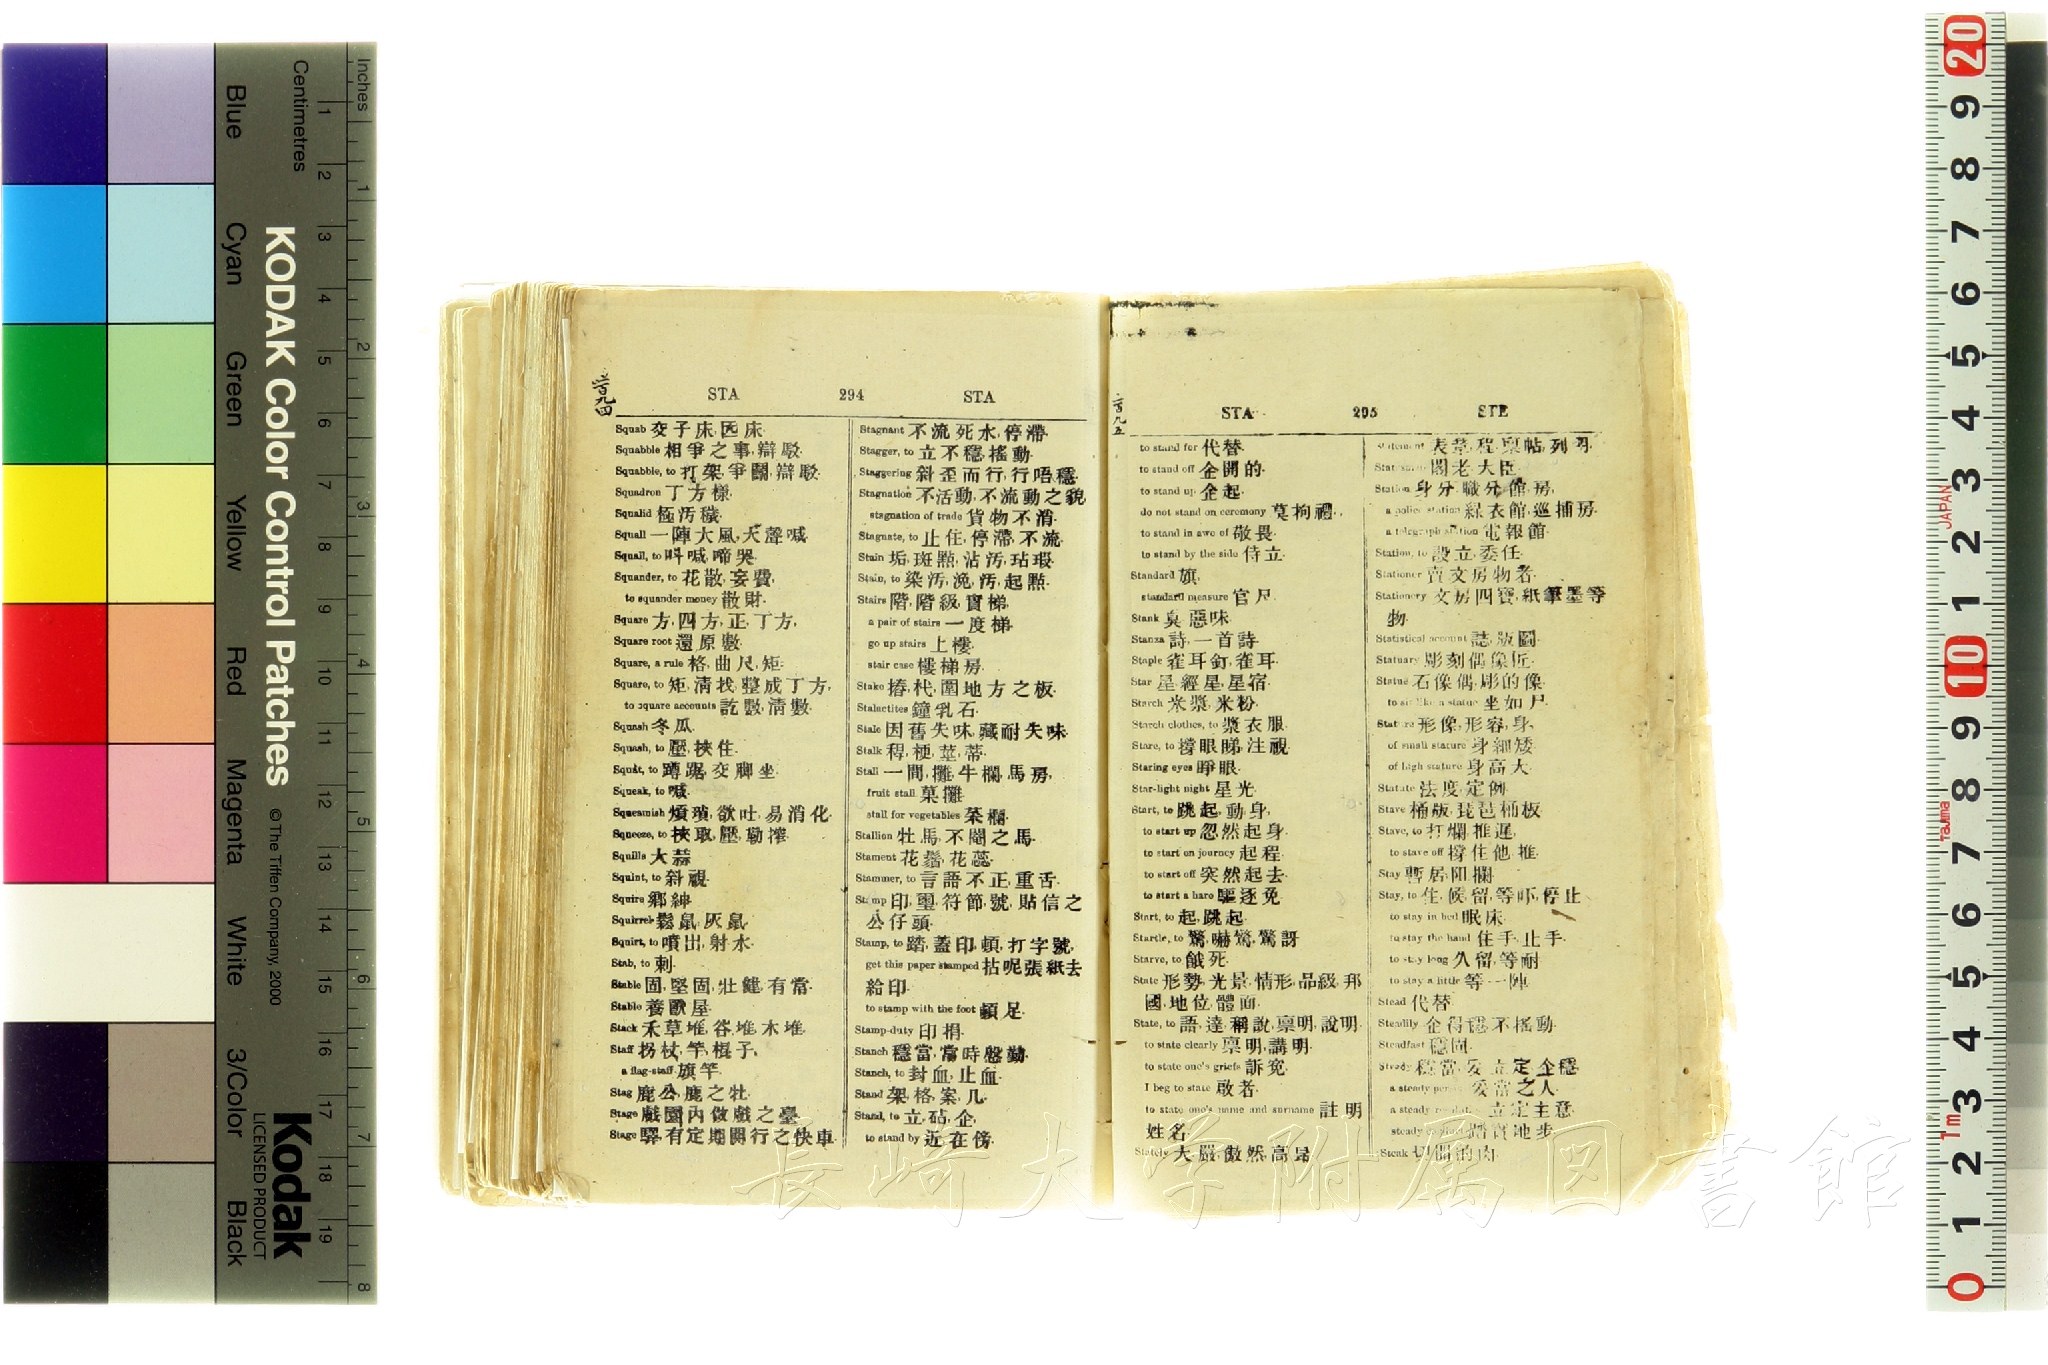 Inches
Centimetres
KODAK Color Control Patches
© The Tiffen Company, 2000
Kodak
LICENSED PRODUCT
Blue
Cyan
Green
Yellow
Red
Magenta
White
3/Color
Black
STA 294 STA
Squab 交子床,匟床
Squabble 相爭之事,辯駁
Squabble, to 打架,爭鬪,辯駁
Squadron 丁方樣
Squalid 極汚穢
Squall 一陣大風,大聲喊
Squall, to 呌喊,啼哭
Squander, to 花散,妄費,
to squander money 散財
Square 方,四方,正,丁方,
Square root 還原數
Square, a rule 格,曲尺,矩
Square, to 矩,清找,整成丁方,
to square accounts 訖數,清數
Squash 冬瓜
Squash, to 壓,挾住
Squat, to 蹲踞,交脚坐
Squeak, to 喊
Squeamish 煩,欲吐,易消化
Squeeze, to 挾取,壓,勒搾
Squills 大蒜
Squint, to 斜視
Squire 鄉紳
Squirrel 鬆鼠,灰鼠
Squirt, to 噴出,射水
Stab, to 刺
Stable 固,堅固,壯健,有當
Stable 養獸屋
Stack 禾草堆,谷堆,木堆
Staff 拐杖,竿,棍子,
a flag-staff 旗竿
Stag 鹿公,鹿之牡
Stage 戲園內做戲之臺
Stage 驛有定期開行之快車
Stagnant 不流,死水,停滯
Stagger, to 立不穩,搖動
Staggering 斜歪而行,行唔穩
Stagnation 不活動,不流動之貌
stagnation of trade 貨物不消
Stagnate, to 止住,停滯,不流
Stain 垢,斑點,沾汚,玷瑕
Stain, to 染汚,浼,汚,起點
Stairs 階,階級,寶梯
a pair of stairs 一度梯
go up stairs 上樓
stair case 樓梯房
Stake 摏,杙,圍地方之板
Stalactites 鐘乳石
Stale 因舊失味,藏耐失味
Stalk 稈,梗,莖,蒂
Stall 一間,攤,牛欄,馬房,
fruit stall 菓攤
stall for vegetables 菜欄
Stallion 牡馬,不閹之馬
Stament 花鬚,花蕊
Stammer, to 言語不正,重舌
Stamp 印,璽,符節,號,貼信之
公仔頭
Stamp, to 踏,蓋印,頓,打字號,
get this paper stamped 拈呢張紙去
給印
to stamp with the foot 頓足
Stamp-duty 印捐
Stanch 穩當,當時慇勤
Stanch, to 封血,止血
Stand 架,格,案,几
Stand, to 立,砧,企,
to stand by 近在傍
STA 295 STE
to stand for 代替
to stand off 企開的
to stand up 企起
do not stand on ceremony 莫拘禮
to stand in awe of 敬畏
to stand by the side 侍立
Standard 旗,
standard measure 官尺
Stank 臭,惡味
Stanza 詩,一首詩
Staple 雀耳釘,雀耳
Star 星,經星,星宿
Starch 米漿,米粉
Starch clothes, to 漿衣服
Stare, to 撐眼睇,注視
Staring eyes 睜眼
Star-light night 星光
Start, to 跳起,動身,
to start up 忽然起身
to start on journey 起程
to start off 突然起去
to start a hare 驅逐兔
Start, to 起,跳起
Startle, to 驚,嚇驚,驚訝
Starve, to 餓死
State 形勢,光景,情形,品級,邦
國,地位,體面
State, to 語,達,稱說,禀明,說明
to state clearly 禀明,講明
to state one's griefs 訴冤
I beg to state 啟者
to state one's name and surname 註明
姓名
Stately 大,嚴,傲然,高昂
Statement 表,章程,禀帖,列明
Statesman 閣老,大臣
Station 身分,職分,館,房,
a police station 綠衣館,巡捕房
a telegraph station 電報館
Station, to 設立,委任
Stationer 賣文房物者
Stationery 文房四寶,紙筆墨等
物
Statistical account 誌,版圖
Statuary 彫刻偶像匠
Statue 石像,偶,彫的像
to sit like a statue 坐如尸
Stature 形像,形容,身,
of small stature 身細矮
of high stature 身高大
Statute 法度,定例
Stave 桶版,琵琶桶板
Stave, to 打爛,推遲,
to stave off 撐住他,推
Stay 暫居,阻攔
Stay, to 住,候,留,等吓,停止
to stay in bed 眠床
to stay the hand 住手,止手
to stay long 久留,等耐
to stay a little 等一陣
Stead 代替
Steadily 企得穩,不搖動
Steadfast 穩固
Steady 穩當,妥立定,企穩
a steady person 妥當之人
立定主意
踏實地步
Steak 切開的肉
長崎大学附属図書館
JAPAN
Tajima
1m